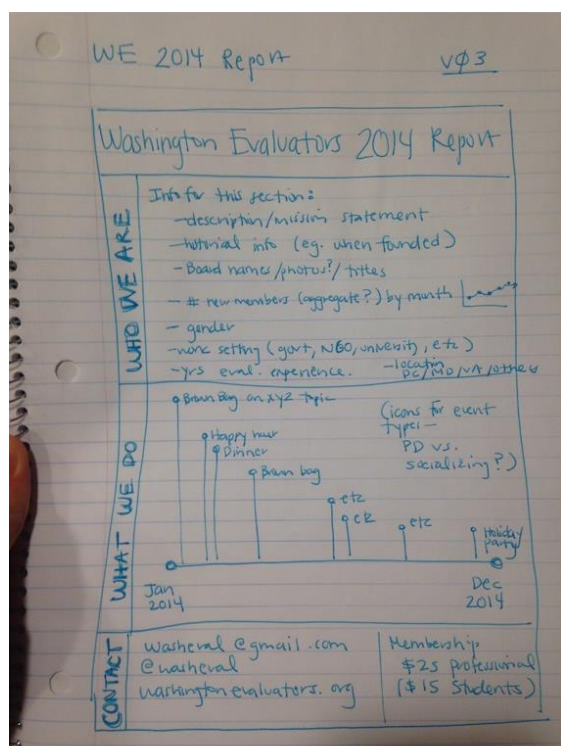 WE 2014 Report
vØ3
Washington Evaluators 2014 Report
WHO WE ARE
Info for this section:
-description/mission statement
-historical info (eg. when founded)
-Board names/photos?/titles
- # new members (aggregate?) by month
- gender
-work setting (govt, NGO, university, etc)
-yrs eval. experience.
-location
DC/MD/VA/other
WHAT WE DO
Brown Bag on XYZ topic
Happy hour
Dinner
Brown bag
etc
etc
etc
Holiday
party
(icons for event
types-
PD vs.
socializing?)
Jan
2014
Dec
2014
CONTACT
washeval@gmail.com
@washeval
washingtonevaluators.org
Membership
$25 professional
($15 Students)